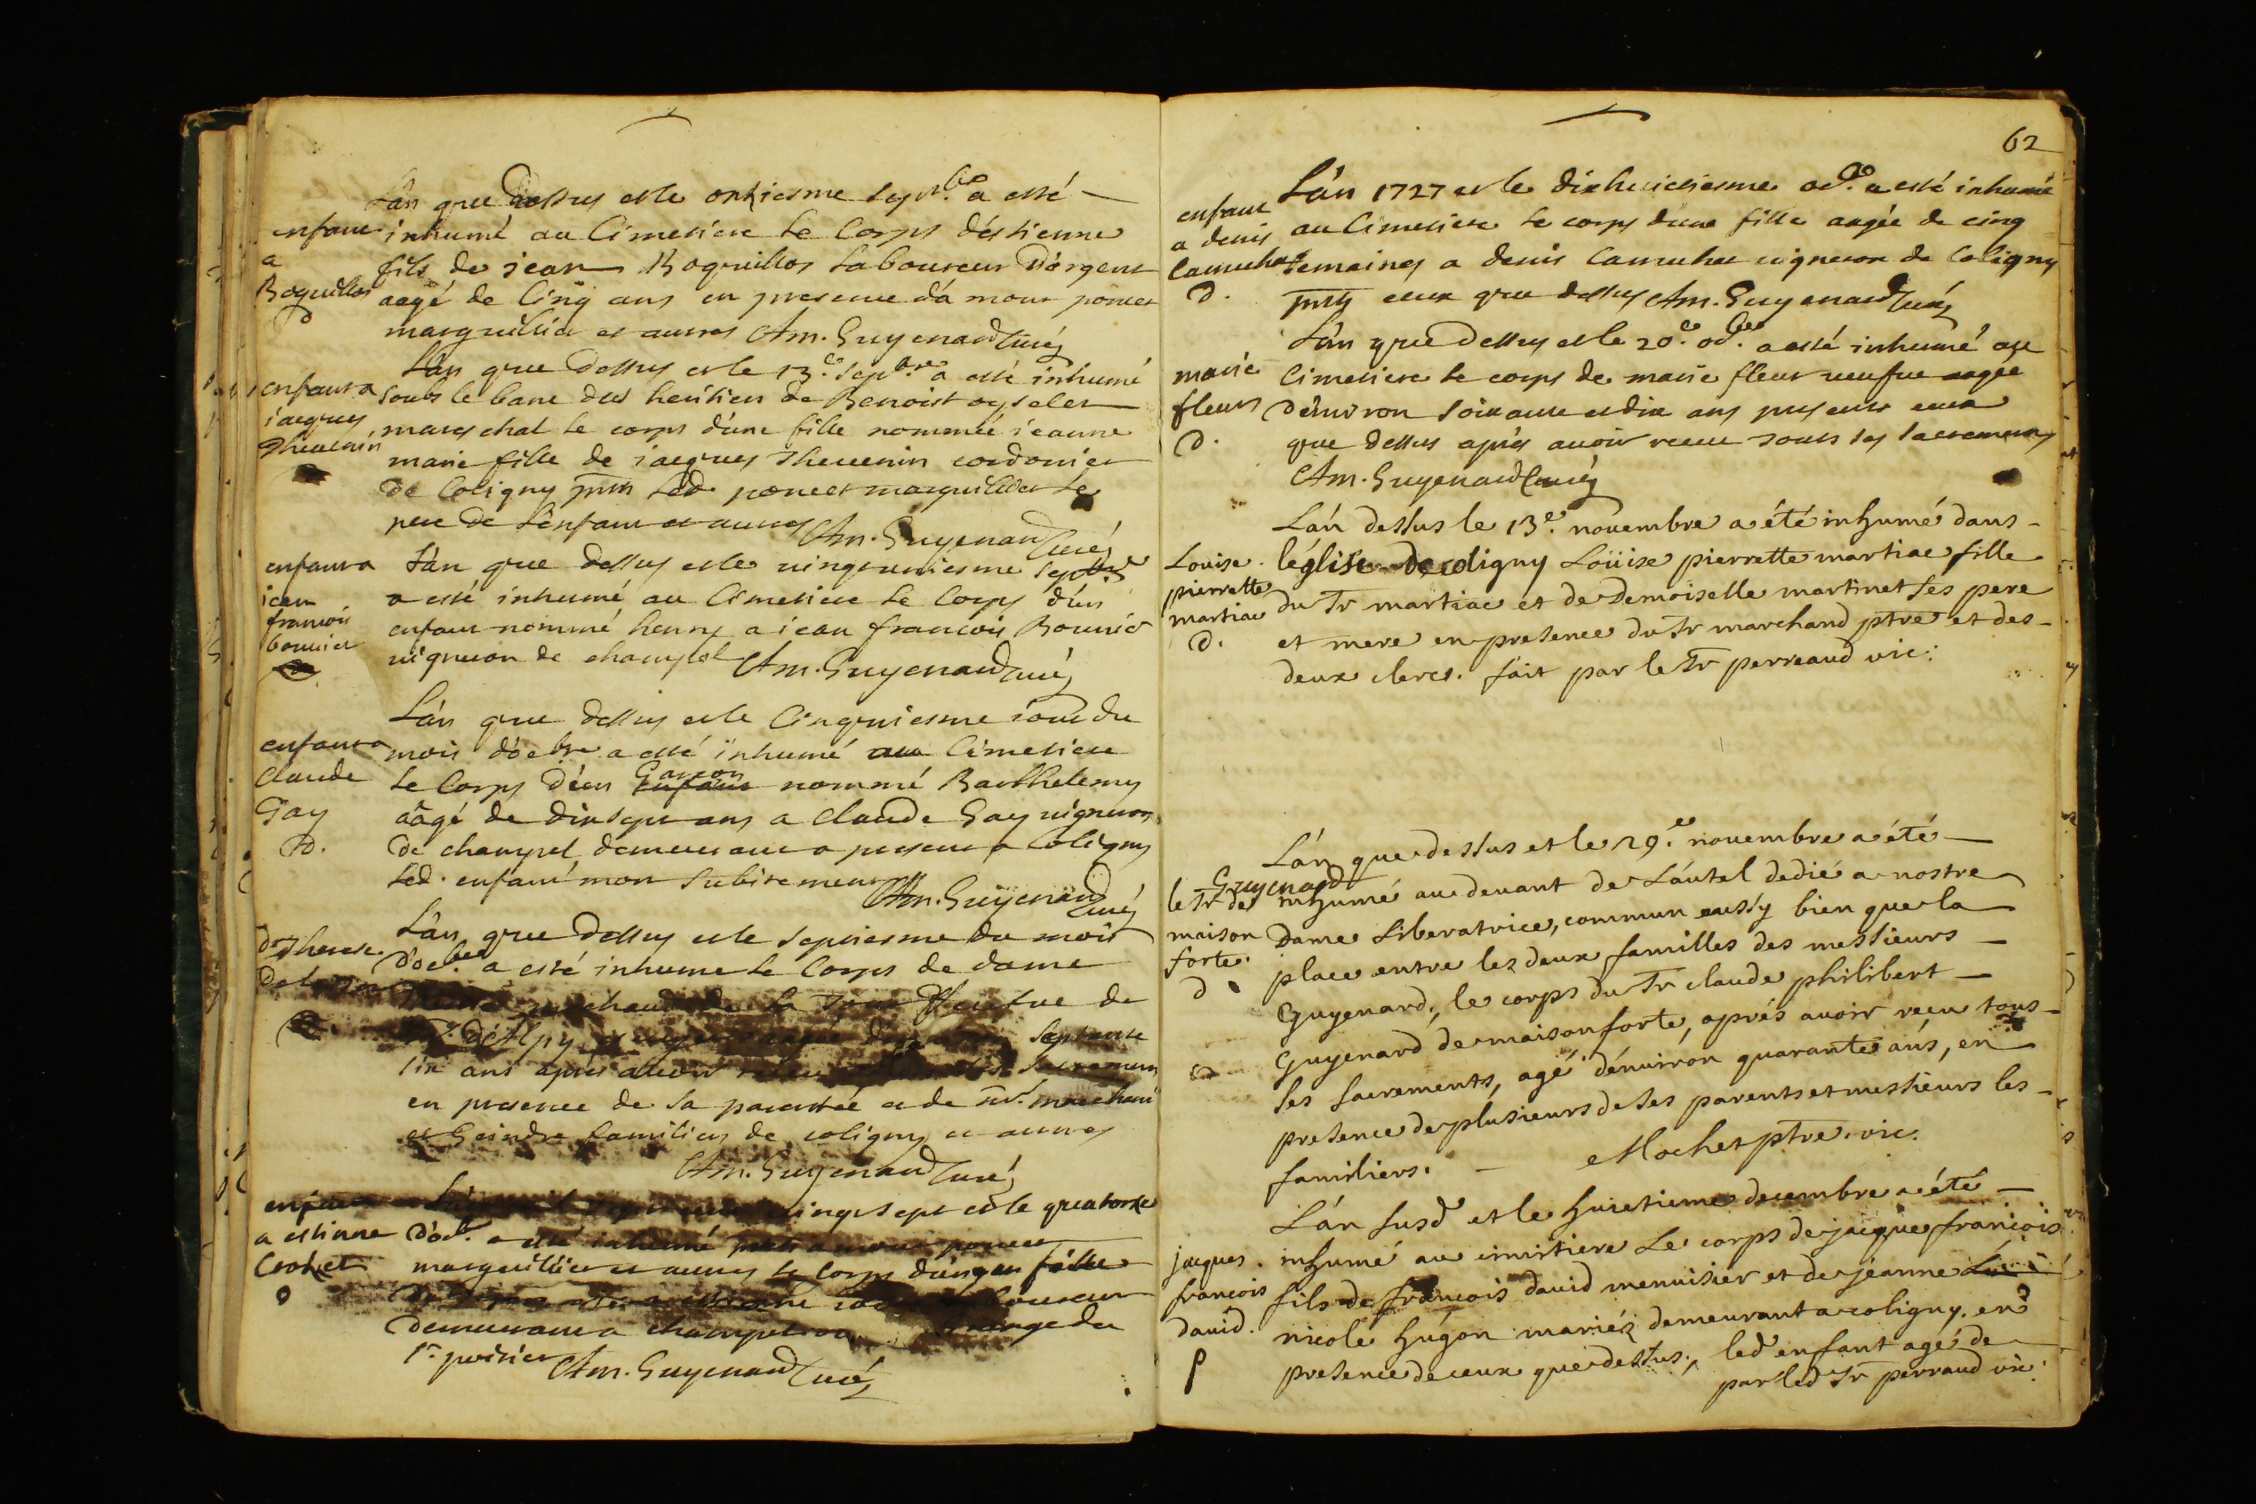 L'an que dessus et le onziesme sept.bre a esté
enfant a Boquillos D
inhumé au Cimetiere le Corps d'estienne
fils de jean Boquillos Laboureur d'argent
aagé de Cinq ans en presence d'a mour poncet
marguillier et autres Am. Guyenard Curé
L'an que dessus et le 13.e sepbre a esté inhumé
enfant a jacques Thevenin
soubs le banc des heritiers de Benoist oyselet
mareschal le corps d'une fille nommée jeanne
marie fille de jacques Thevenin cordonier
de Coligny pnts led. poncet marguillier le
pere de L'enfant et autres Am. Guyenard Curé
enfant a jean francois bonnier
L'an que dessus et le vingt uniesme septbre
a esté inhumé au Cimetiere le Corps d'un
enfant nommé henry a jean francois Bonnier
vigneron de champel Am. Guyenard Curé
L'an que dessus et le Cinquiesme jour du
enfant a Claude Gay D.
mois d'octbre a esté inhumé au Cimetiere
le Corps d'un enfant Garcon nommé Barthelemy
aagé de dix sept ans a Claude Gay vigneron
de champel demeurant a present a Coligny
led. enfant mort subitement Am. Guyenard Curé
L'an que dessus et le septiesme du mois
De Therese
d'octbre a esté inhume le Corps de dame
marchand de La veufve de
d'Alpy septante
six ans apres avoir receu Sacremens
en presence de sa parentée et de mrs. marchand
et Geindre familiers de coligny et autres
Am. Guyenard Curé
enfant a estienne Crozet D
vingt sept et le quatorze
d'oct. a esté inhumé
marguillier et autres le Corps d'une fille
demeurant a champel grange du
Sr. perrier Am. Guyenard Curé
62
L'an 1727 et le dixhuictiesme oct.bre a esté inhumé
enfant a denis Camuhat D.
au Cimetiere le corps d'une fille aagée de cinq
semaines a denis Camuhat vigneron de Coligny
pnts ceux que dessus Am. Guyenard Curé
L'an que dessus et le 20.e oct.bre a esté inhumé au
marie fleur D.
Cimetiere le corps de marie fleur veufve aagée
d'environ soixante et dix ans presents ceux
que dessus apres avoir receu tous les sacremens
Am. Guyenard Curé
L'an dessus le 13.e novembre a été inhumé dans
Louise pierrette martiac D.
l'église de coligny Loüise pierrette martiac fille
du Sr martiac et de Demoiselle martinet ses pere
et mere en presence du Sr marchand ptre et des
deux clercs. fait par le Sr perreaud vic:
L'an que dessus et le 29.e novembre a été
le Sr Guyenard de maison forte. D
inhumé au devant de L'autel dedié a nostre
Dame Liberatrice, commun aussy bien que la
place entre les deux familles des messieurs
Guyenard, le corps du Sr claude philibert
Guyenard de maisonforte, aprés avoir reçu tous
ses sacrements, agé d'environ quarante ans, en
presence de plusieurs de ses parents et messieurs les
familiers. Mochet ptre. vic.
L'an susd et le huictieme decembre a été
jaques francois david. P
inhumé au cimitiere le corps de jacque françois
fils de françois david menuisier et de jeanne
nicole hugon mariéz demeurant a coligny. en
presence de ceux que dessus, led enfant agé de
par led Sr perraud vic: